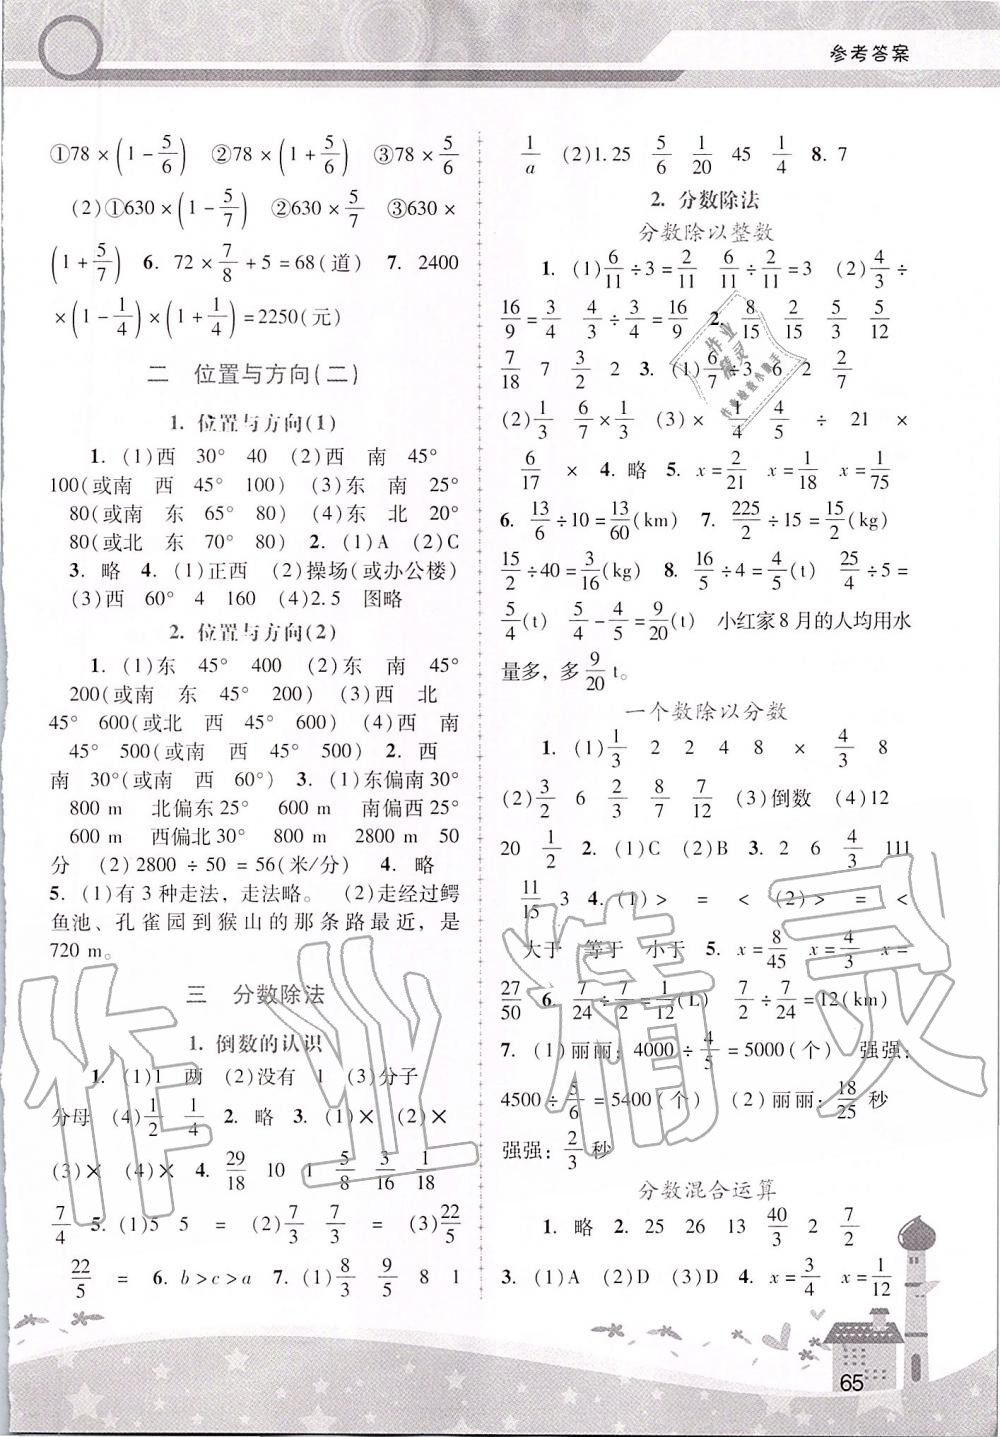 参考答案
①78×(1-5/6) ②78×(1+5/6) ③78×5/6
(2)①630×(1-5/7) ②630×5/7 ③630×
(1+5/7) 6. 72×7/8+5=68(道) 7. 2400
×(1-1/4)×(1+1/4)=2250(元)
二 位置与方向(二)
1. 位置与方向(1)
1. (1)西 30° 40 (2)西 南 45°
100(或南 西 45° 100) (3)东 南 25°
80(或南 东 65° 80) (4)东 北 20°
80(或北 东 70° 80) 2. (1)A (2)C
3. 略 4. (1)正西 (2)操场(或办公楼)
(3)西 60° 4 160 (4)2.5 图略
2. 位置与方向(2)
1. (1)东 45° 400 (2)东 南 45°
200(或南 东 45° 200) (3)西 北
45° 600(或北 西 45° 600) (4)西 南
45° 500(或南 西 45° 500) 2. 西
南 30°(或南 西 60°) 3. (1)东偏南30°
800 m 北偏东25° 600 m 南偏西25°
600 m 西偏北30° 800 m 2800 m 50
分 (2)2800÷50=56(米/分) 4. 略
5. (1)有3种走法,走法略。 (2)走经过鳄
鱼池、孔雀园到猴山的那条路最近,是
720 m。
三 分数除法
1. 倒数的认识
1. (1)1 两 (2)没有 1 (3)分子
分母 (4)1/2 1/4 2. 略 3. (1)× (2)×
(3)× (4)× 4. 29/18 10 1 5/8 3/16 1/18
7/4 5. (1)5 5 = (2)7/3 7/3 = (3)22/5
22/5 = 6. b>c>a 7. (1)8/3 9/5 8 1
1/a (2)1.25 5/6 1/20 45 1/4 8. 7
2. 分数除法
分数除以整数
1. (1)6/11÷3=2/11 6/11÷2/11=3 (2)4/3÷
16/9=3/4 4/3÷3/4=16/9 2. 8/15 2/15 5/3 5/12
7/18 7 3/2 2 3. (1)6/7÷3 6 2 2/7
(2)1/3 6/7×1/3 (3)× 1/4 4/5 ÷ 21 ×
6/17 × 4. 略 5. x=2/21 x=1/18 x=1/75
6. 13/6÷10=13/60(km) 7. 225/2÷15=15/2(kg)
15/2÷40=3/16(kg) 8. 16/5÷4=4/5(t) 25/4÷5=
5/4(t) 5/4-4/5=9/20(t) 小红家8月的人均用水
量多,多9/20 t。
一个数除以分数
1. (1)1/3 2 2 4 8 × 4/3 8
(2)3/2 6 2/3 8/7 7/12 (3)倒数 (4)12
20 1/2 2. (1)C (2)B 3. 2 6 4/3 111
11/15 3 4. (1)> = < (2)> = <
大于 等于 小于 5. x=8/45 x=4/3 x=
27/50 6. 7/24÷7/2=1/12(L) 7/2÷7/24=12(km)
7. (1)丽丽:4000÷4/5=5000(个) 强强:
4500÷5/6=5400(个) (2)丽丽:18/25秒
强强:2/3秒
分数混合运算
1. 略 2. 25 26 13 40/3 2 7/2
3. (1)A (2)D (3)D 4. x=3/4 x=1/12
65
作业精灵